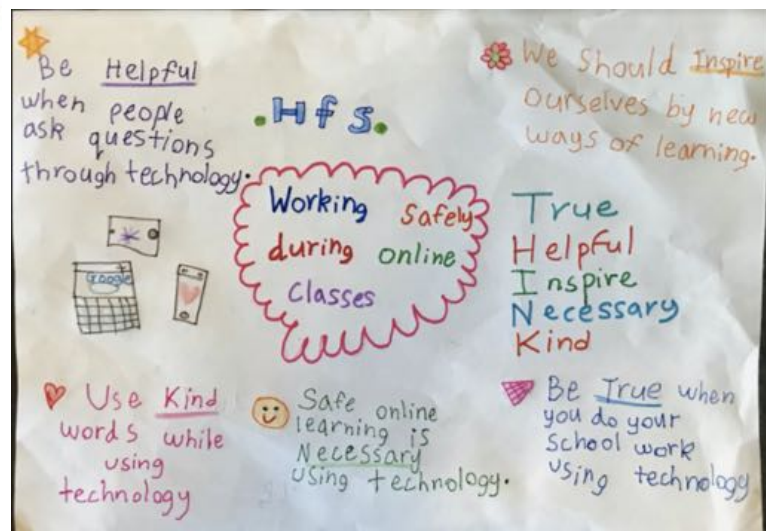 Be Helpful
when people
ask questions
through technology.
.Hfs.
We Should Inspire
ourselves by new
ways of learning.
Working Safely
during online
Classes
True
Helpful
Inspire
Necessary
Kind
Google
Use Kind
words while
using
technology
Safe online
learning is
Necessary
using technology.
Be True when
you do your
School work
using technology